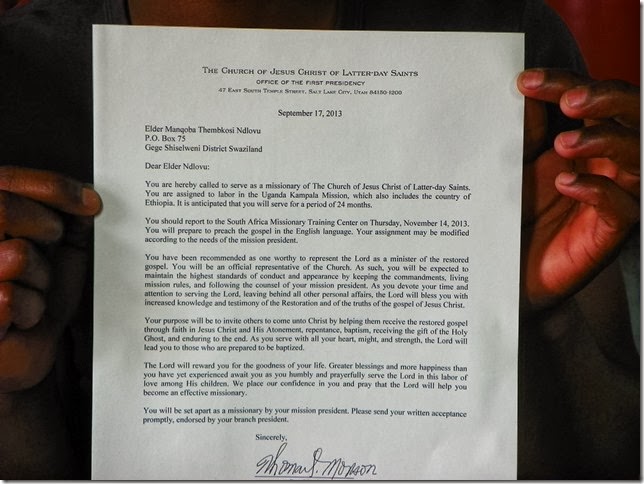 THE CHURCH OF JESUS CHRIST OF LATTER-DAY SAINTS
OFFICE OF THE FIRST PRESIDENCY
47 EAST SOUTH TEMPLE STREET, SALT LAKE CITY, UTAH 84150-1200
September 17, 2013
Elder Manqoba Thembkosi Ndlovu
P.O. Box 75
Gege Shiselweni District Swaziland
Dear Elder Ndlovu:
You are hereby called to serve as a missionary of The Church of Jesus Christ of Latter-day Saints.
You are assigned to labor in the Uganda Kampala Mission, which also includes the country of
Ethiopia. It is anticipated that you will serve for a period of 24 months.
You should report to the South Africa Missionary Training Center on Thursday, November 14, 2013.
You will prepare to preach the gospel in the English language. Your assignment may be modified
according to the needs of the mission president.
You have been recommended as one worthy to represent the Lord as a minister of the restored
gospel. You will be an official representative of the Church. As such, you will be expected to
maintain the highest standards of conduct and appearance by keeping the commandments, living
mission rules, and following the counsel of your mission president. As you devote your time and
attention to serving the Lord, leaving behind all other personal affairs, the Lord will bless you with
increased knowledge and testimony of the Restoration and of the truths of the gospel of Jesus Christ.
Your purpose will be to invite others to come unto Christ by helping them receive the restored gospel
through faith in Jesus Christ and His Atonement, repentance, baptism, receiving the gift of the Holy
Ghost, and enduring to the end. As you serve with all your heart, might, and strength, the Lord will
lead you to those who are prepared to be baptized.
The Lord will reward you for the goodness of your life. Greater blessings and more happiness than
you have yet experienced await you as you humbly and prayerfully serve the Lord in this labor of
love among His children. We place our confidence in you and pray that the Lord will help you
become an effective missionary.
You will be set apart as a missionary by your mission president. Please send your written acceptance
promptly, endorsed by your branch president.
Sincerely,
Thomas S. Monson